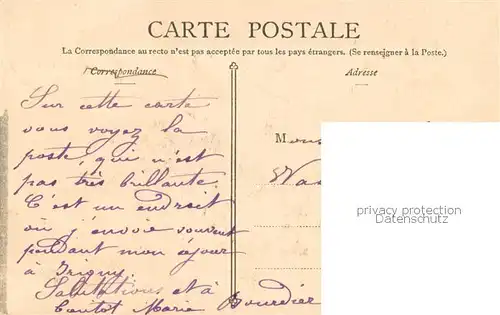 CARTE POSTALE
La Correspondance au recto n'est pas acceptée par tous les pays étrangers. (Se renseigner à la Poste.)
Correspondance
Adresse
Sur cette carte
vous voyez la
poste, qui n'est
pas très brillante.
C'est un endroit
où j'envoie souvent
pendant mon séjour
à Grigny.
Salutations et à
bientôt Marie Bourdier
Mons
privacy protection
Datenschutz